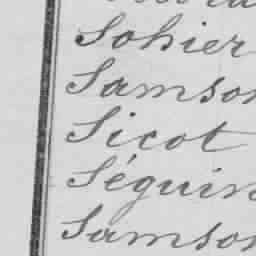 Sohier
Samson
Sicot
Séguin
Samson